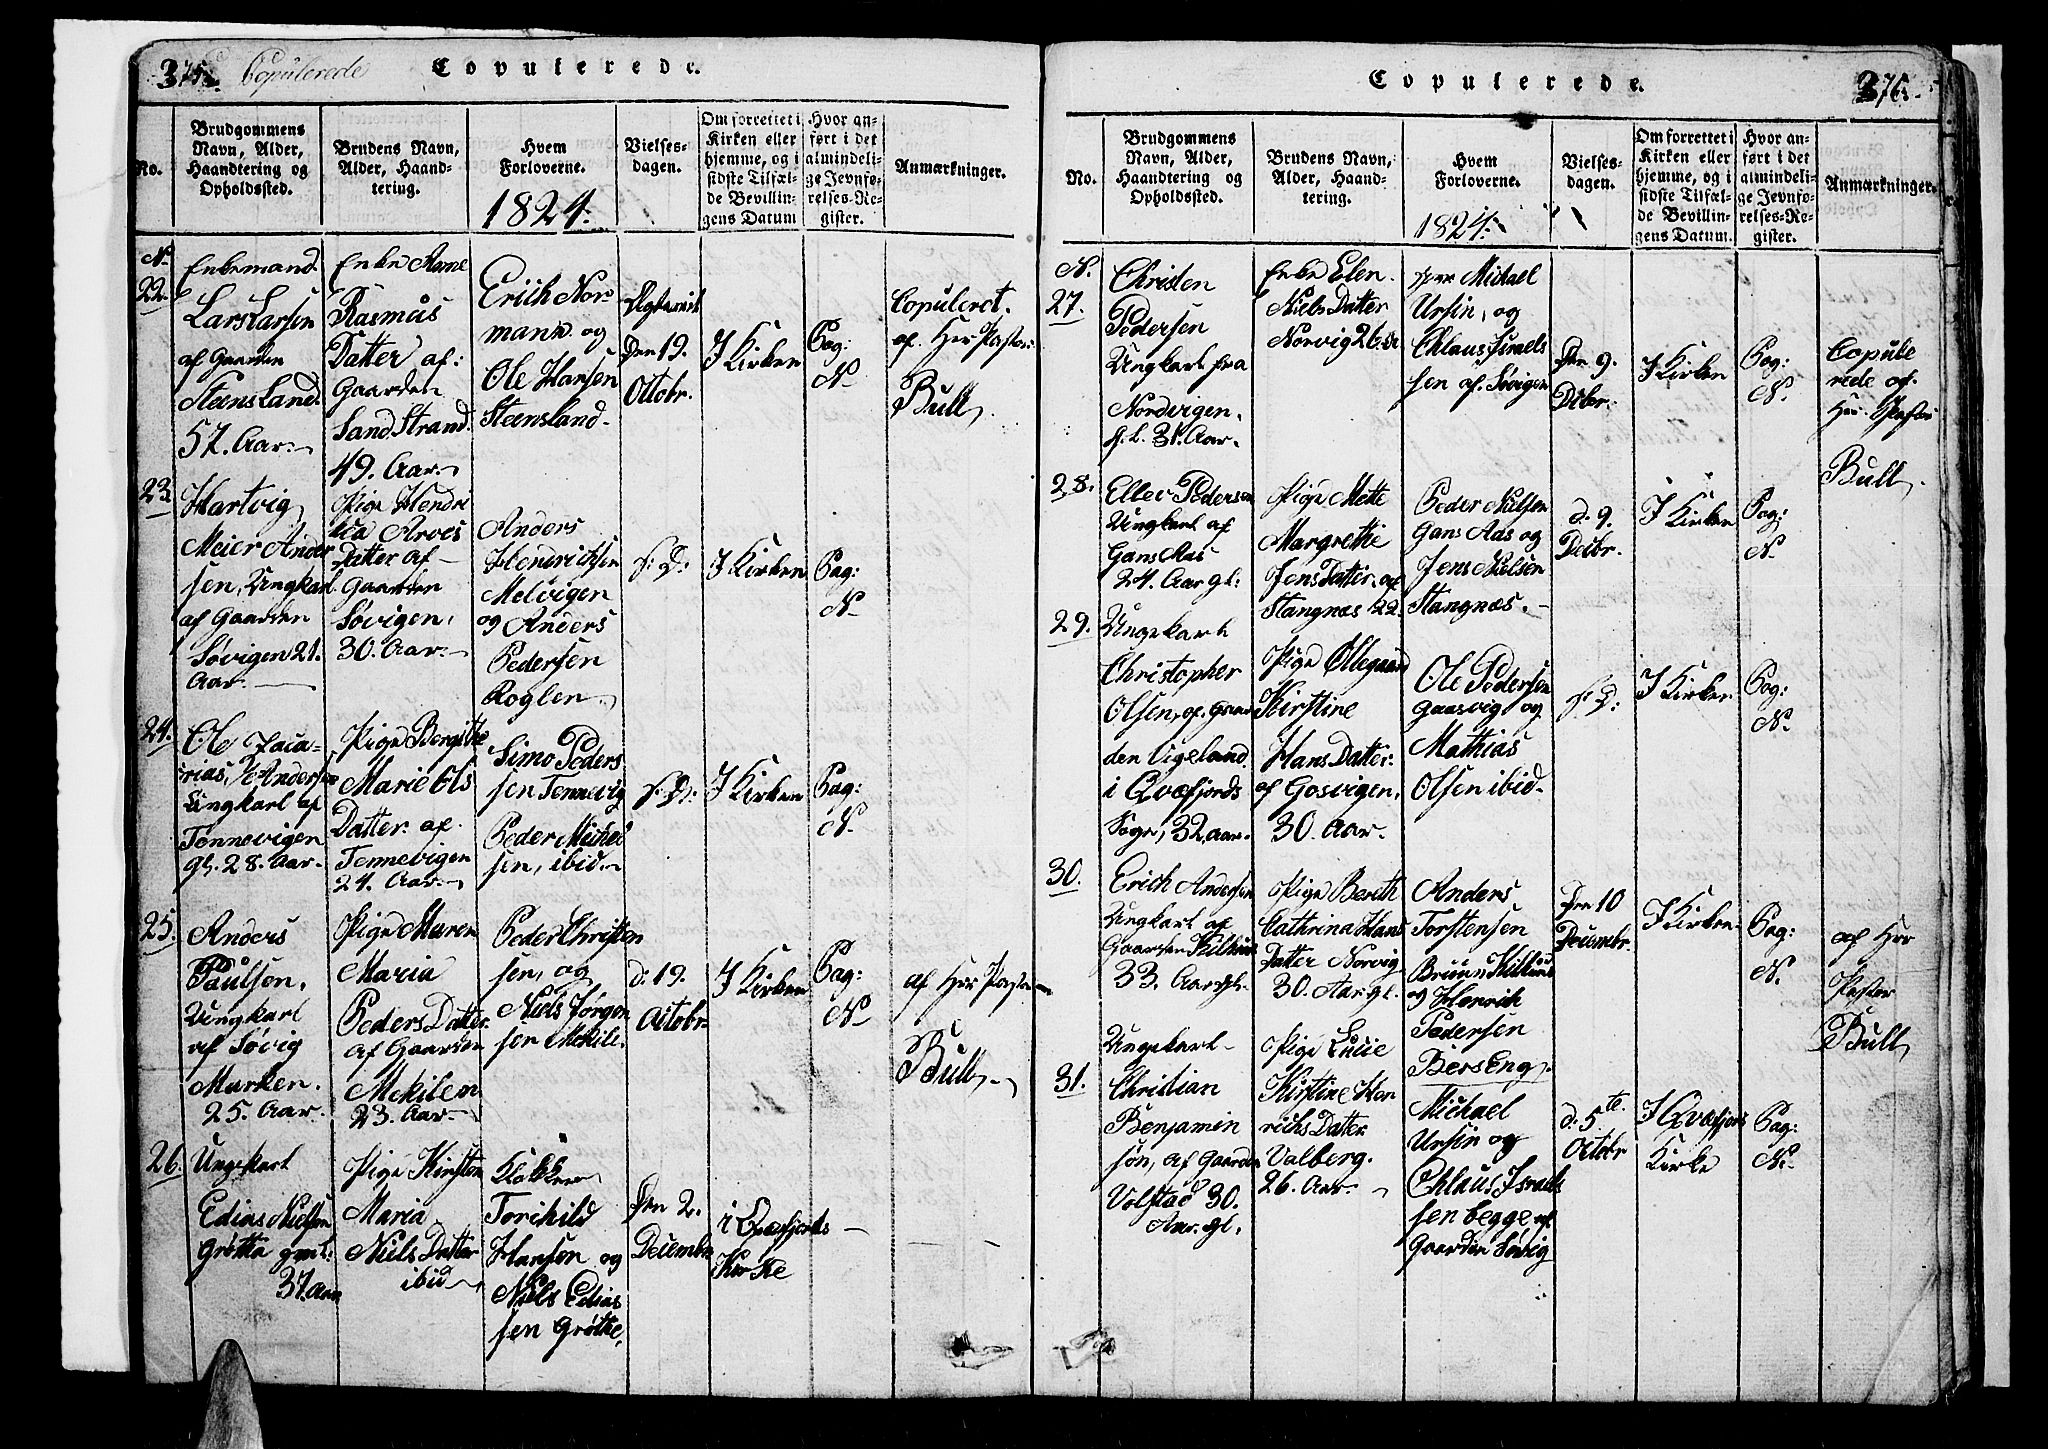 375. Copulerede
Copulerede.
No.
Brudgommens
Navn, Alder,
Haandtering og
Opholdssted.
Brudens Navn,
Alder, Haand-
tering.
Hvem
Forloverne.
1824.
Vielses-
dagen.
Om forrettet i
Kirken eller
hjemme, og i
sidste Tilfæl-
de Bevillin-
gens Datum
Hvor an-
ført i det
almindeli-
ge Jevnfø-
relses-Re-
gister.
Anmærkninger.
N.
22.
Enkemand
Lars Larsen
af Gaarden
Steensland
57. Aar.
Enke Anne
Rasmus
Datter af
Gaarden
Sand Strand.
49. Aar.
Erich Nor
mann og
Ole Hansen
Steensland.
Den 19.
Octobr.
I Kirken
Pag:
N.
Copuleret.
af Hrr Pastor
Bull
23
Hartvig
Meier Ander
sen, Ungkarl
af Gaarden
Søvigen 21.
Aar.
Pige Hendri
ca Arves
Datter af
Gaarden
Søvigen,
30. Aar.
Anders
Hendrichsen
Melvigen
og Anders
Pedersen
Roglen.
s: D:
I Kirken
Pag:
N.
24.
Ole Zaca-
rias, Andersen
Ungkarl af
Tennevigen
gl. 28. Aar.
Pige Bergithe
Marie Ols
Datter af
Tennevigen
24. Aar.
Simo Peders
sen Tennevig
Peder Michel
sen, ibid.
s: D:
I Kirken
Pag:
N.
25.
Anders
Paulsen,
Ungkarl
af Søvig
Marken.
25. Aar.
Pige Maren
Maria
Peders Datter
af Gaarden
Mekilen
23. Aar.
Peder Christen
sen, og
Niels Jørgen
sen Mekile.
d. 19.
Octobr.
I Kirken
Pag:
N.
af Hrr Pastor
Bull.
26.
Ungekarl
Edias Nielsen
Grøtta gml:
37. Aar
Pige Kirsten
Maria
Niels Datter
ibid
Klokker
Torchild
Hansen og
Niels Edias
sen Grøtte.
Den 2.
Decembr
i Qvæfjords
Kirke
Copulerede.
376.
No.
Brudgommens
Navn, Alder,
Haandtering og
Opholdssted.
Brudens Navn,
Alder, Haand-
tering.
Hvem
Forloverne.
1824.
Vielses-
dagen.
Om forrettet i
Kirken eller
hjemme, og i
sidste Tilfæl-
de Bevillin-
gens Datum.
Hvor an-
ført i det
almindeli-
ge Jevnfø-
relses-Re-
gister.
Anmærkninger.
N.
27.
Christen
Pedersen
Ungkarl fra
Nordvigen.
gl. 31. Aar.
Enke Elen
Niels Datter
Norvig 26
Michael
Ursin, og
Chlaus Israels
sen af Søvigen
Den 9.
Decbr.
I Kirken
Pag:
N.
Copule
rede af
Hrr Pastor
Bull.
28.
Eller Pedersen
Ungkarl af
Gans Aas
24. Aar gl:
Pige Mette
Margrethe
Jens Datter af
Stangnæs 22.
Peder Nielsen
Gans Aas og
Jens Nielsen
Stangnæs.
d. 9.
Decbr.
I Kirken
Pag:
N.
29.
Ungekarl
Christopher
Olsen, af Gaar
den Vigeland
i Qvæfjords
Sogn, 32 aar.
Pige Ollegaard
Kirstine
Hans Datter
af Gosvigen,
30. Aar.
Ole Pedersen
Gaasvig og
Mathias
Olsen ibid.
s: D:
I Kirken
Pag:
N.
30.
Erich Andersen
Ungkarl af
Gaarden Kilhuus
33. Aar gl.
Pige Bereth
Cathrina Hans
Datter Norvig
30. Aar gl.
Anders
Torstensen
Bruun Kilhuus
og Henrich
Pedersen
Berseng.
Den 10
Decembr.
I Kirken
Pag:
N.
af Hrr
Pastor
Bull
31.
Ungekarl
Christian
Benjamin
søn, af Gaarden
Volstad 30.
Aar. gl.
Pige Lucie
Kirstine Hen
richs Datter
Valberg.
26. Aar.
Michael
Ursin og
Chlaus Israels
sen begge af
Gaarden Søvig
d: 5te
Octobr
I Qvæfjors
Kirke
Pag:
N.